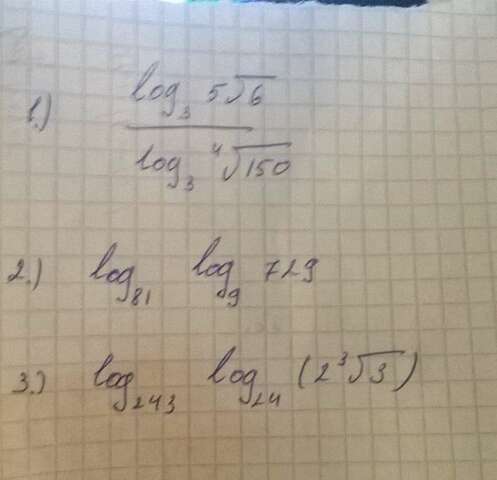 1.) log₃ 5√6
log₃ ⁴√150
2.) log₈₁ log₉ 729
3.) log₂₄₃ log₂₄ (2³√3)